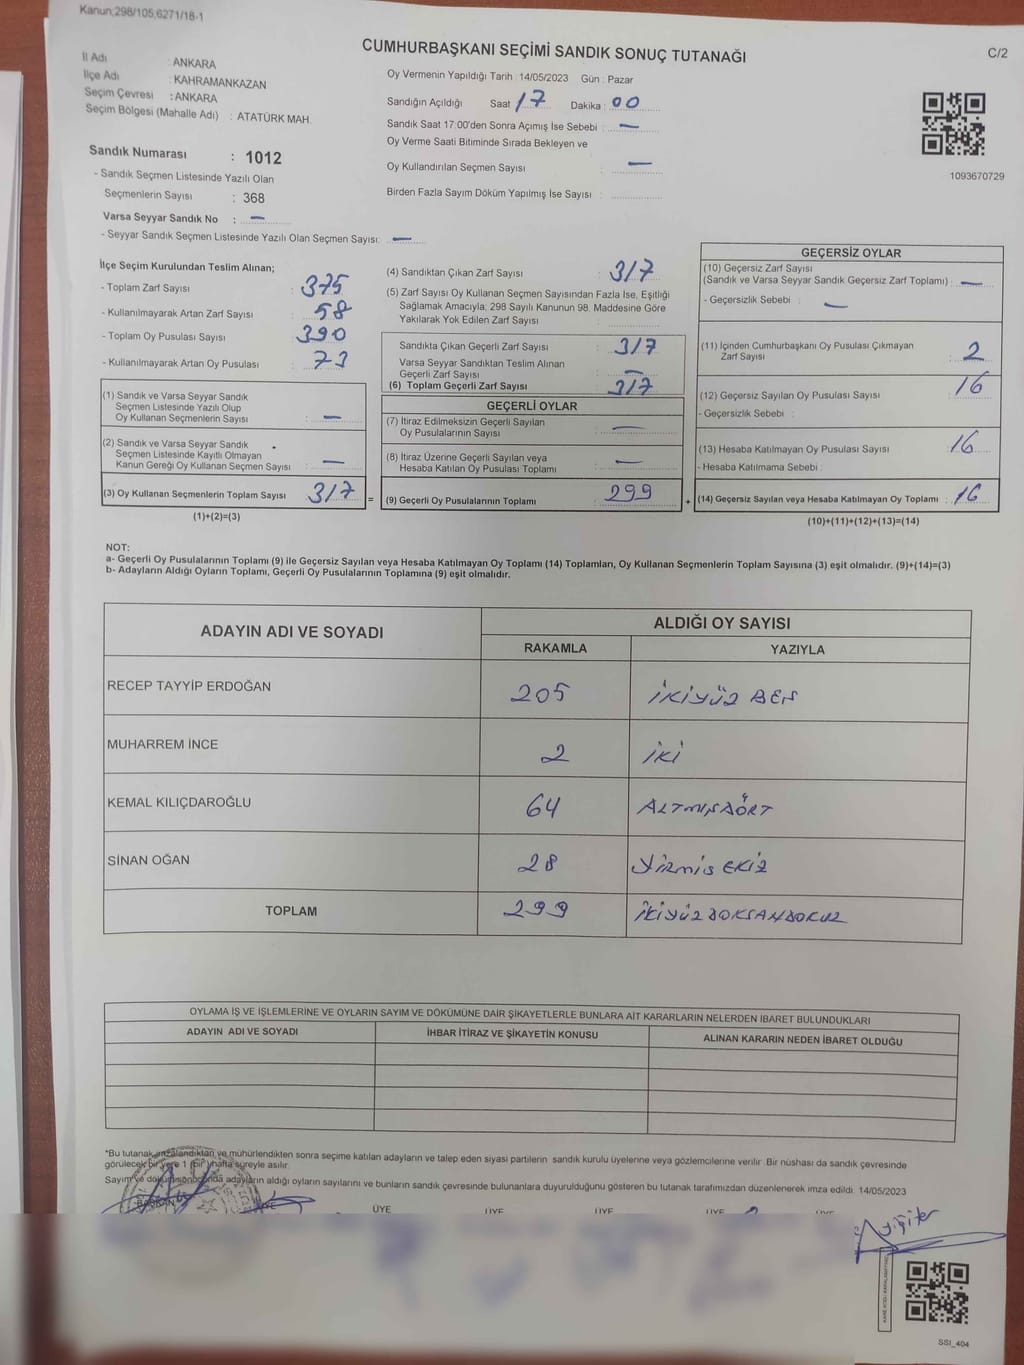 Kanun;298/105,6271/18-1
CUMHURBAŞKANI SEÇİMİ SANDIK SONUÇ TUTANAĞI
C/2
İl Adı : ANKARA
İlçe Adı : KAHRAMANKAZAN
Seçim Çevresi : ANKARA
Seçim Bölgesi (Mahalle Adı) : ATATÜRK MAH.
Sandık Numarası : 1012
- Sandık Seçmen Listesinde Yazılı Olan
Seçmenlerin Sayısı : 368
Varsa Seyyar Sandık No : —
- Seyyar Sandık Seçmen Listesinde Yazılı Olan Seçmen Sayısı: —
Oy Vermenin Yapıldığı Tarih : 14/05/2023 Gün : Pazar
Sandığın Açıldığı Saat 17 Dakika : 00
Sandık Saat 17:00'den Sonra Açımış İse Sebebi : —
Oy Verme Saati Bitiminde Sırada Bekleyen ve
Oy Kullandırılan Seçmen Sayısı : —
Birden Fazla Sayım Döküm Yapılmış İse Sayısı :
1093670729
İlçe Seçim Kurulundan Teslim Alınan;
- Toplam Zarf Sayısı : 375
- Kullanılmayarak Artan Zarf Sayısı : 58
- Toplam Oy Pusulası Sayısı : 390
- Kullanılmayarak Artan Oy Pusulası : 73
(1) Sandık ve Varsa Seyyar Sandık
Seçmen Listesinde Yazılı Olup
Oy Kullanan Seçmenlerin Sayısı : —
(2) Sandık ve Varsa Seyyar Sandık
Seçmen Listesinde Kayıtlı Olmayan
Kanun Gereği Oy Kullanan Seçmen Sayısı : —
(3) Oy Kullanan Seçmenlerin Toplam Sayısı : 317
(1)+(2)=(3)
(4) Sandıktan Çıkan Zarf Sayısı : 317
(5) Zarf Sayısı Oy Kullanan Seçmen Sayısından Fazla İse, Eşitliği
Sağlamak Amacıyla; 298 Sayılı Kanunun 98. Maddesine Göre
Yakılarak Yok Edilen Zarf Sayısı :
Sandıkta Çıkan Geçerli Zarf Sayısı : 317
Varsa Seyyar Sandıktan Teslim Alınan
Geçerli Zarf Sayısı : —
(6) Toplam Geçerli Zarf Sayısı : 317
GEÇERLİ OYLAR
(7) İtiraz Edilmeksizin Geçerli Sayılan
Oy Pusulalarının Sayısı : —
(8) İtiraz Üzerine Geçerli Sayılan veya
Hesaba Katılan Oy Pusulası Toplamı : —
= (9) Geçerli Oy Pusulalarının Toplamı : 299
GEÇERSİZ OYLAR
(10) Geçersiz Zarf Sayısı
(Sandık ve Varsa Seyyar Sandık Geçersiz Zarf Toplamı) : —
- Geçersizlik Sebebi : —
(11) İçinden Cumhurbaşkanı Oy Pusulası Çıkmayan
Zarf Sayısı : 2
(12) Geçersiz Sayılan Oy Pusulası Sayısı : 16
- Geçersizlik Sebebi :
(13) Hesaba Katılmayan Oy Pusulası Sayısı : 16
- Hesaba Katılmama Sebebi :
+ (14) Geçersiz Sayılan veya Hesaba Katılmayan Oy Toplamı : 16
(10)+(11)+(12)+(13)=(14)
NOT:
a- Geçerli Oy Pusulalarının Toplamı (9) ile Geçersiz Sayılan veya Hesaba Katılmayan Oy Toplamı (14) Toplamları, Oy Kullanan Seçmenlerin Toplam Sayısına (3) eşit olmalıdır. (9)+(14)=(3)
b- Adayların Aldığı Oyların Toplamı, Geçerli Oy Pusulalarının Toplamına (9) eşit olmalıdır.
ADAYIN ADI VE SOYADI ALDIĞI OY SAYISI
RAKAMLA YAZIYLA
RECEP TAYYİP ERDOĞAN 205 İKİYÜZ BEŞ
MUHARREM İNCE 2 İKİ
KEMAL KILIÇDAROĞLU 64 ALTMIŞDÖRT
SİNAN OĞAN 28
TOPLAM 299 İKİYÜZDOKSANDOKUZ
OYLAMA İŞ VE İŞLEMLERİNE VE OYLARIN SAYIM VE DÖKÜMÜNE DAİR ŞİKAYETLERLE BUNLARA AİT KARARLARIN NELERDEN İBARET BULUNDUKLARI
ADAYIN ADI VE SOYADI İHBAR İTİRAZ VE ŞİKAYETİN KONUSU ALINAN KARARIN NEDEN İBARET OLDUĞU
*Bu tutanak imzalandıktan ve mühürlendikten sonra seçime katılan adayların ve talep eden siyasi partilerin sandık kurulu üyelerine veya gözlemcilerine verilir. Bir nüshası da sandık çevresinde
görülecek bir yere 1 (bir) hafta süreyle asılır.
Sayım ve döküm sonucunda adayların aldığı oyların sayılarını ve bunların sandık çevresinde bulunanlara duyurulduğunu gösteren bu tutanak tarafımızdan düzenlenerek imza edildi. 14/05/2023
BAŞKAN ÜYE ÜYE ÜYE ÜYE ÜYE ÜYE
SSI_404